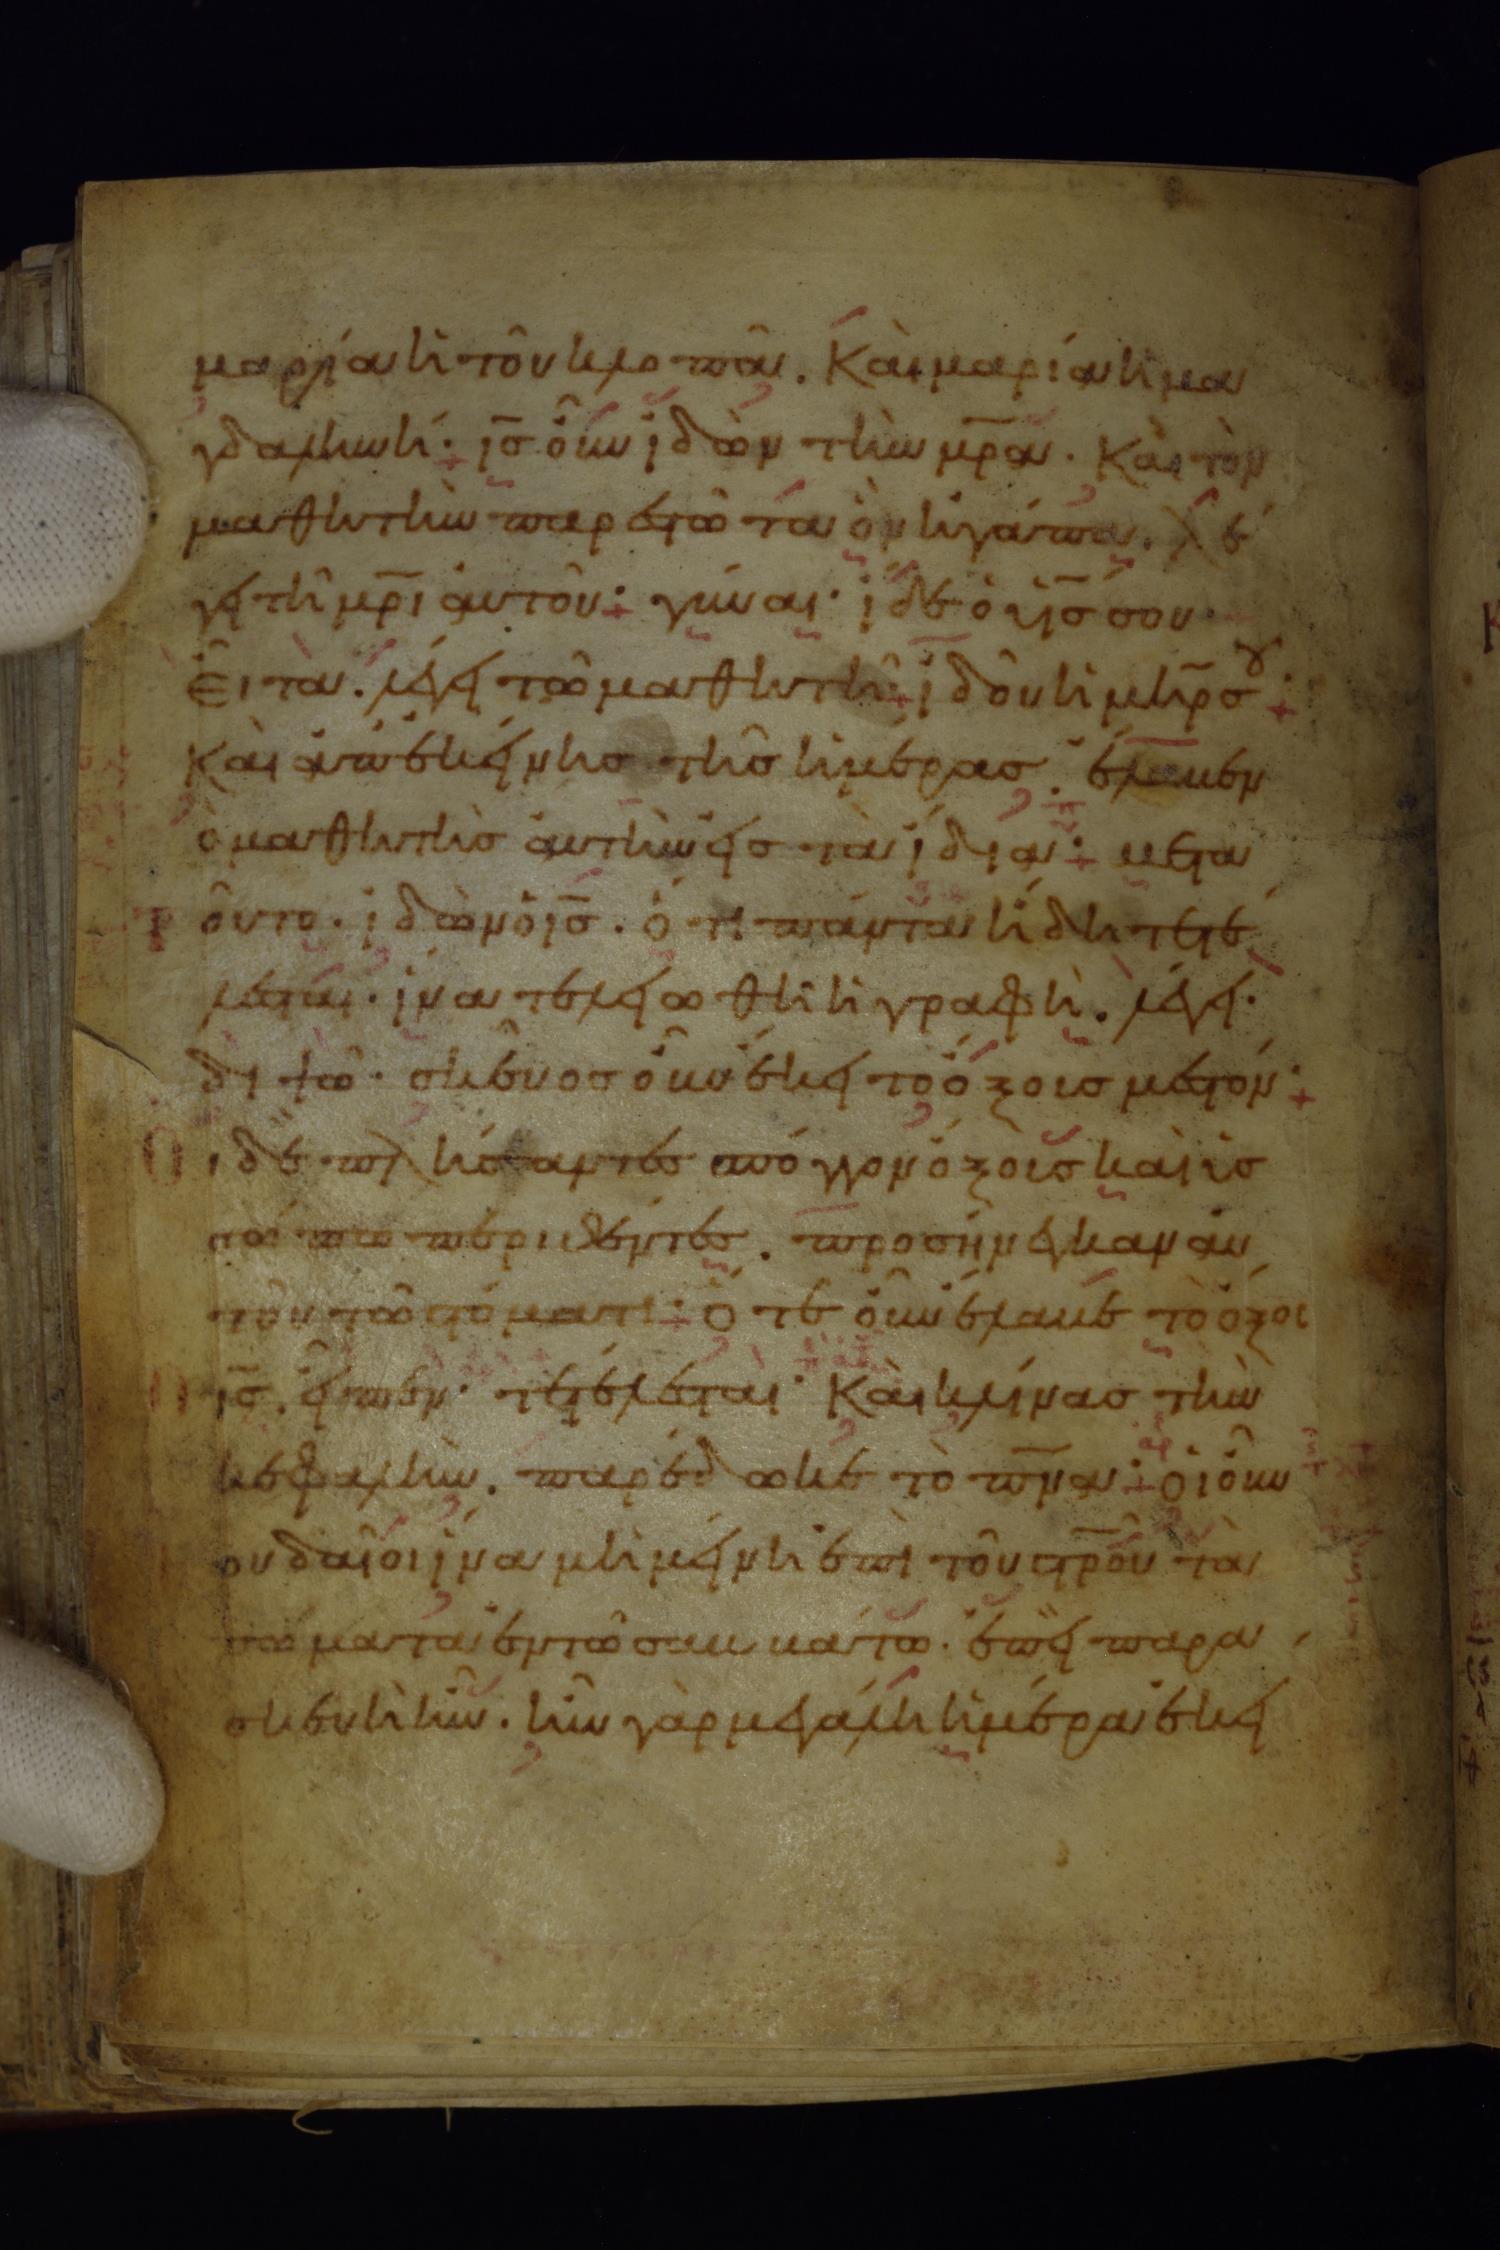 μαρία ἡ τοῦ κλοπᾶ. Καὶ μαρία ἡ μα
γδαληνή· ις οὖν ἰδὼν τὴν μρα. Καὶ τὸν
μαθητὴν παρεστῶτα ὃν ἠγάπα. λέ
γει τῆ μρι αὐτοῦ· γύναι· ἴδε ὁ υἱς σου·
Εἶτα. λέγει τῶ μαθητῆ· ἰδοῦ ἡ μηρ σου·
Καὶ ἀπ' ἐκείνης τῆς ἡμέρας. ἔλαβεν
ὁ μαθητὴς αὐτὴν εἰς τὰ ἴδια· μετὰ
τοῦτο. ἰδὼν ὁ ις. ὅτι πάντα ἤδη τετέ
λεσται. ἵνα τελειωθῆ ἡ γραφὴ. λέγει·
διψῶ· σκεῦος οὖν ἔκειτο ὄξους μεστόν·
Οἱ δὲ πλήσαντες σπόγγον ὄξους καὶ ὑσ
σώπω περιθέντες. προσήνεγκαν αὐ
τοῦ τῶ στόματι· Ὅτε οὖν ἔλαβε τὸ ὄξος
ὁ ις. εἶπεν· τετέλεσται· Καὶ κλίνας τὴν
κεφαλὴν. παρέδωκε τὸ πνα· οἱ οὖν
ἰουδαῖοι ἵνα μὴ μείνη ἐπὶ τοῦ στροῦ τὰ
σώματα ἐν τῶ σαββάτω. ἐπεὶ παρα
σκευὴ ἦν. ἦν γὰρ μεγάλη ἡ ἡμέρα ἐκεί